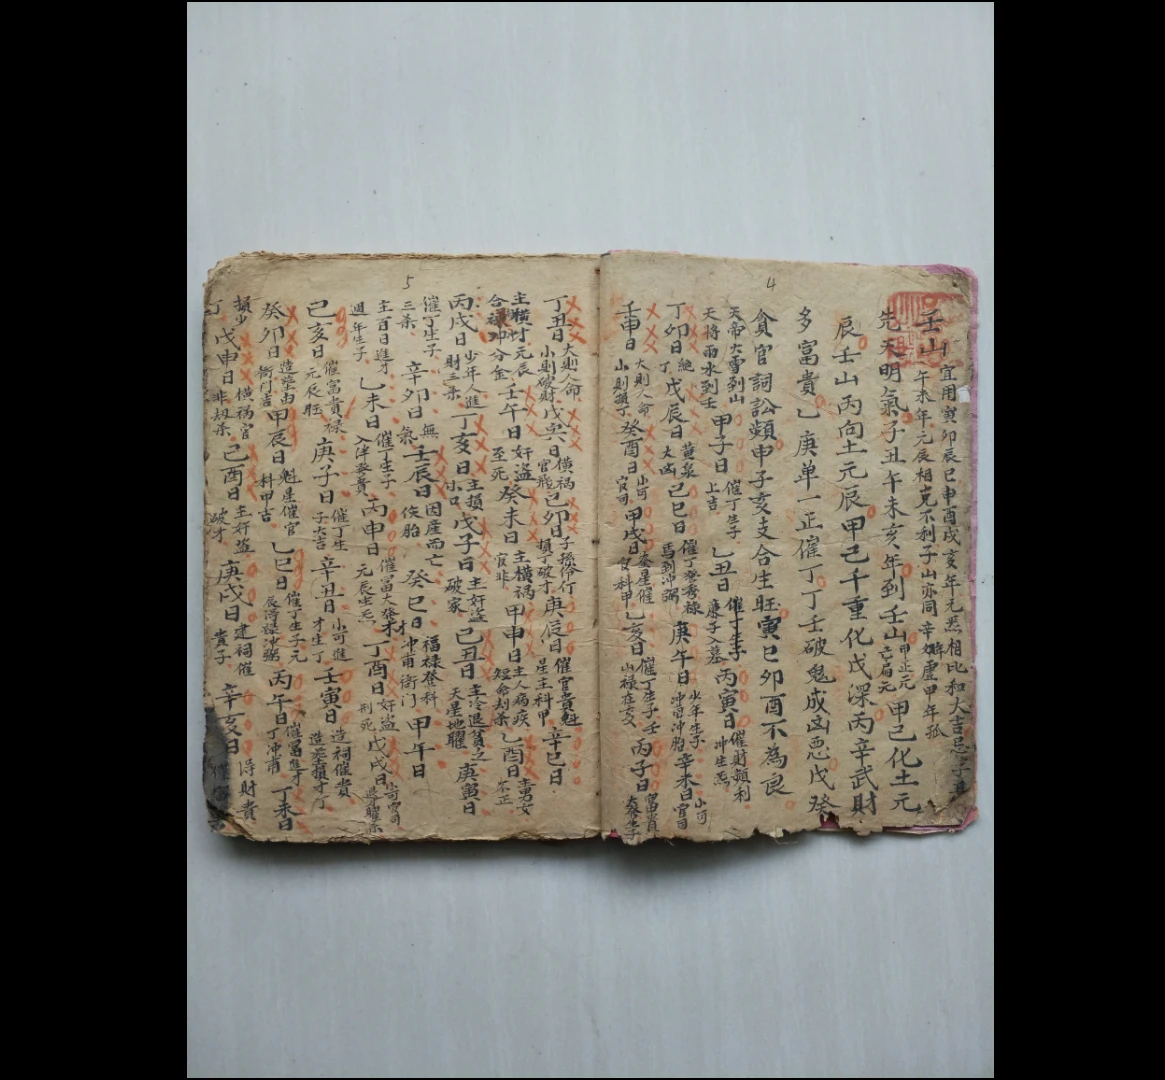 4
壬山 宜用寅卯辰巳申酉戌亥年元炁相比和大吉忌子丑
午未年元辰相克不利子山亦同辛 虛甲年孤
先天明氣子丑午未亥年到壬山 甲己化土元
辰壬山丙向土元辰甲己千重化戊深丙辛武財
多富貴乙庚单一正催丁丁壬破鬼成凶惡戊癸
貪官詞訟頻申子亥支合生旺寅巳卯酉不為良
天帝大雷到山
天将雨水到壬
甲子日 催丁生子 上吉
乙丑日 催丁生子 廉子入墓
丙寅日 催財頻利 冲生炁
丁卯日 絶丁
戊辰日 黄泉大凶
己巳日 催丁發秀禄 馬到冲弼
庚午日 少年生子 冲官冲胎
辛未日 小可官司
壬申日 大則人命 小則損丁
癸酉日 小可官司
甲戌日 奎星催官科甲
乙亥日 催丁生子壬山禄在亥
丙子日 富貴大發生子
5
丁丑日 大則人命 小則破財
戊寅日 横禍官賊
己卯日 子孫伶仃 損丁破才
庚辰日 催官貴魁星主科甲
辛巳日
主横才元辰
合 卯分金
壬午日 奸盜至死
癸未日 主横禍官非
甲申日 主人病疾 短命劫杀
乙酉日 主男女不正
丙戌日 少年人進財三杀
丁亥日 主損小口
戊子日 主奸盜破家
己丑日 主冷退貧乏 天星地曜
庚寅日
催丁生子
三杀
辛卯日 無氣
壬辰日 因産而亡 侠胎
癸巳日 福禄登科 冲甫衙门
甲午日
主百日進才
週年生子
乙未日 催丁生子 入泮發貴
丙申日 催富大發才 元辰生炁
丁酉日 奸盜刑死
戊戌日 小可官司
己亥日 催富貴禄元辰旺
庚子日 催丁生子大吉
辛丑日 小可進才生丁
壬寅日 造祠催貴 造塋損才丁
癸卯日 造塋由衙门吉
甲辰日 魁星催官科甲吉
乙巳日 催丁生子元辰得禄冲弼
丙午日 催富進才丁冲甫
丁未日
損少丁
戊申日 横禍官非劫杀
己酉日 主奸盗破才
庚戌日 建祠催貴子
辛亥日 得財貴